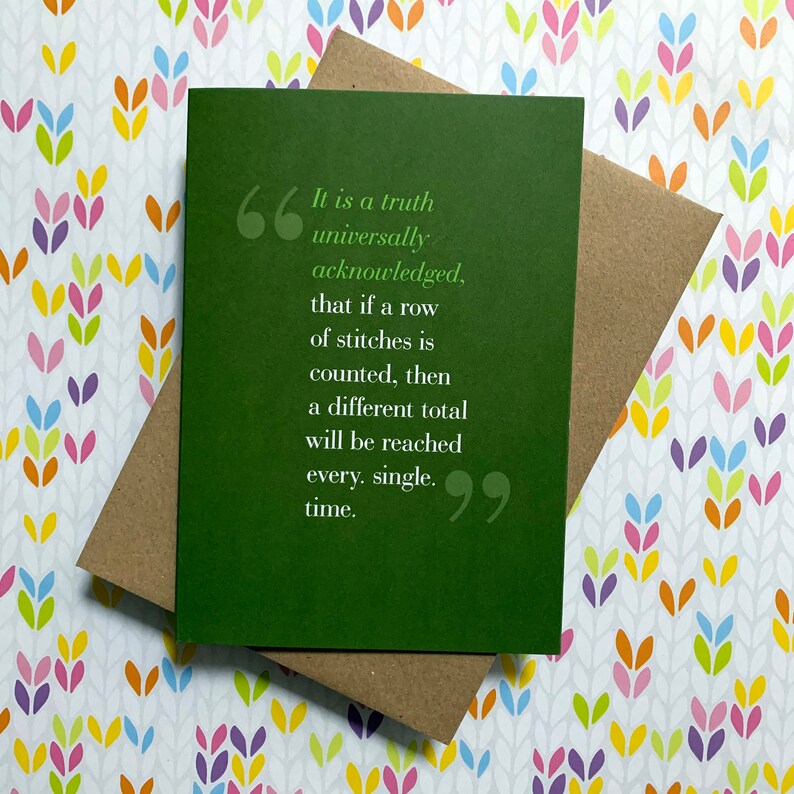 “
It is a truth
universally
acknowledged,
that if a row
of stitches is
counted, then
a different total
will be reached
every. single.
time.
”